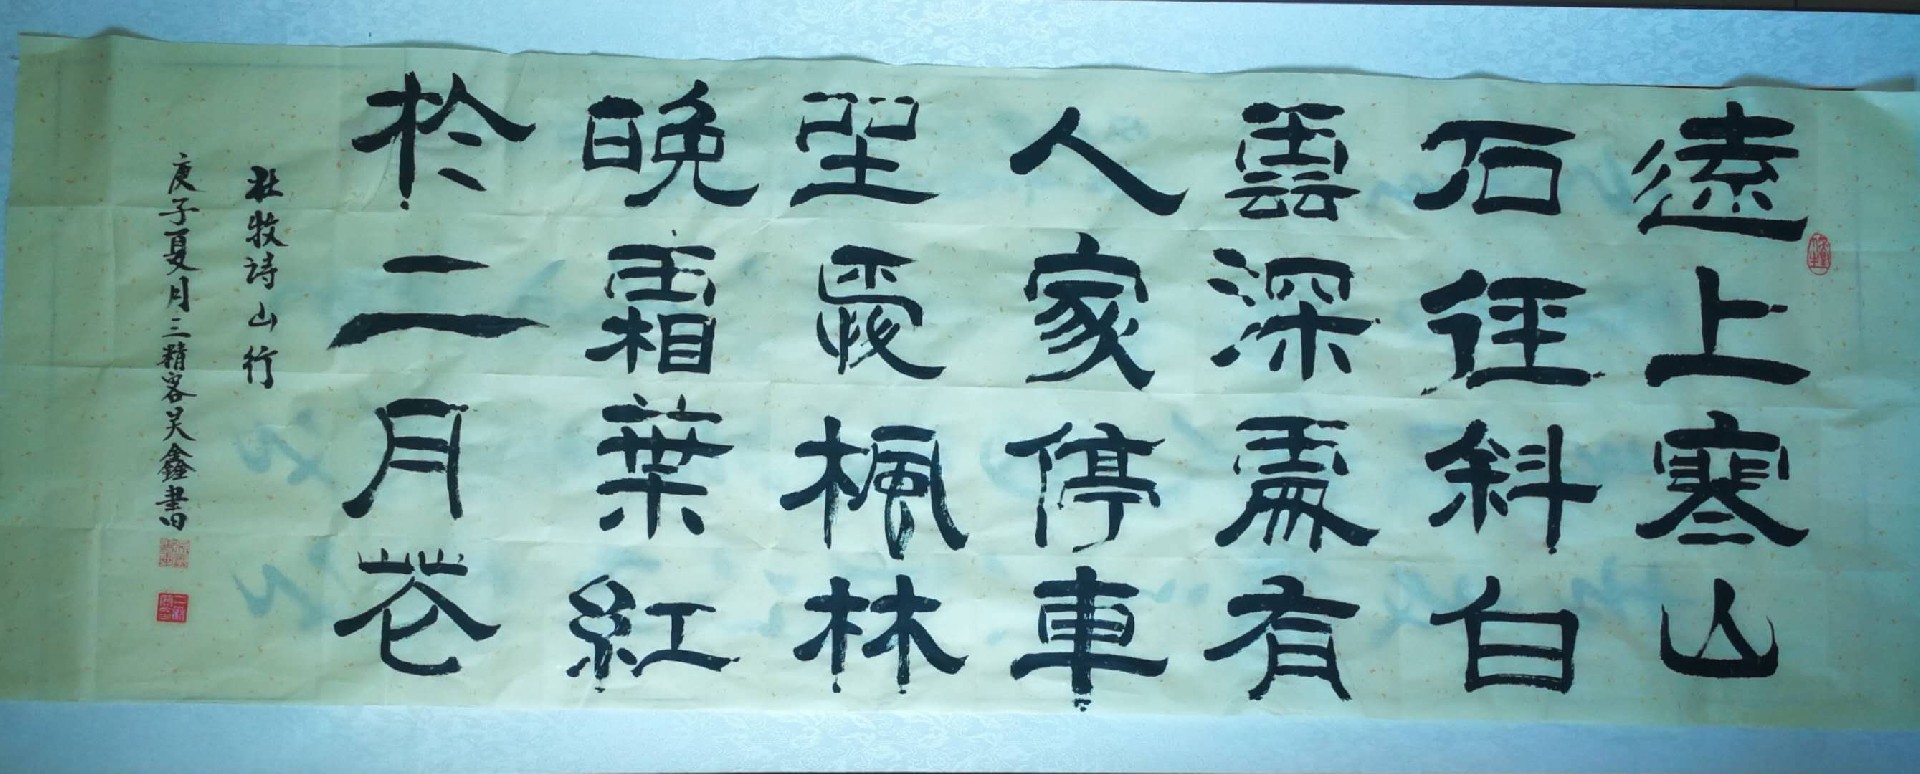 遠上寒山
石徑斜白
雲深處有
人家停車
坐愛楓林
晚霜葉紅
於二月花
杜牧詩山行
庚子夏月三精客吴鑫書